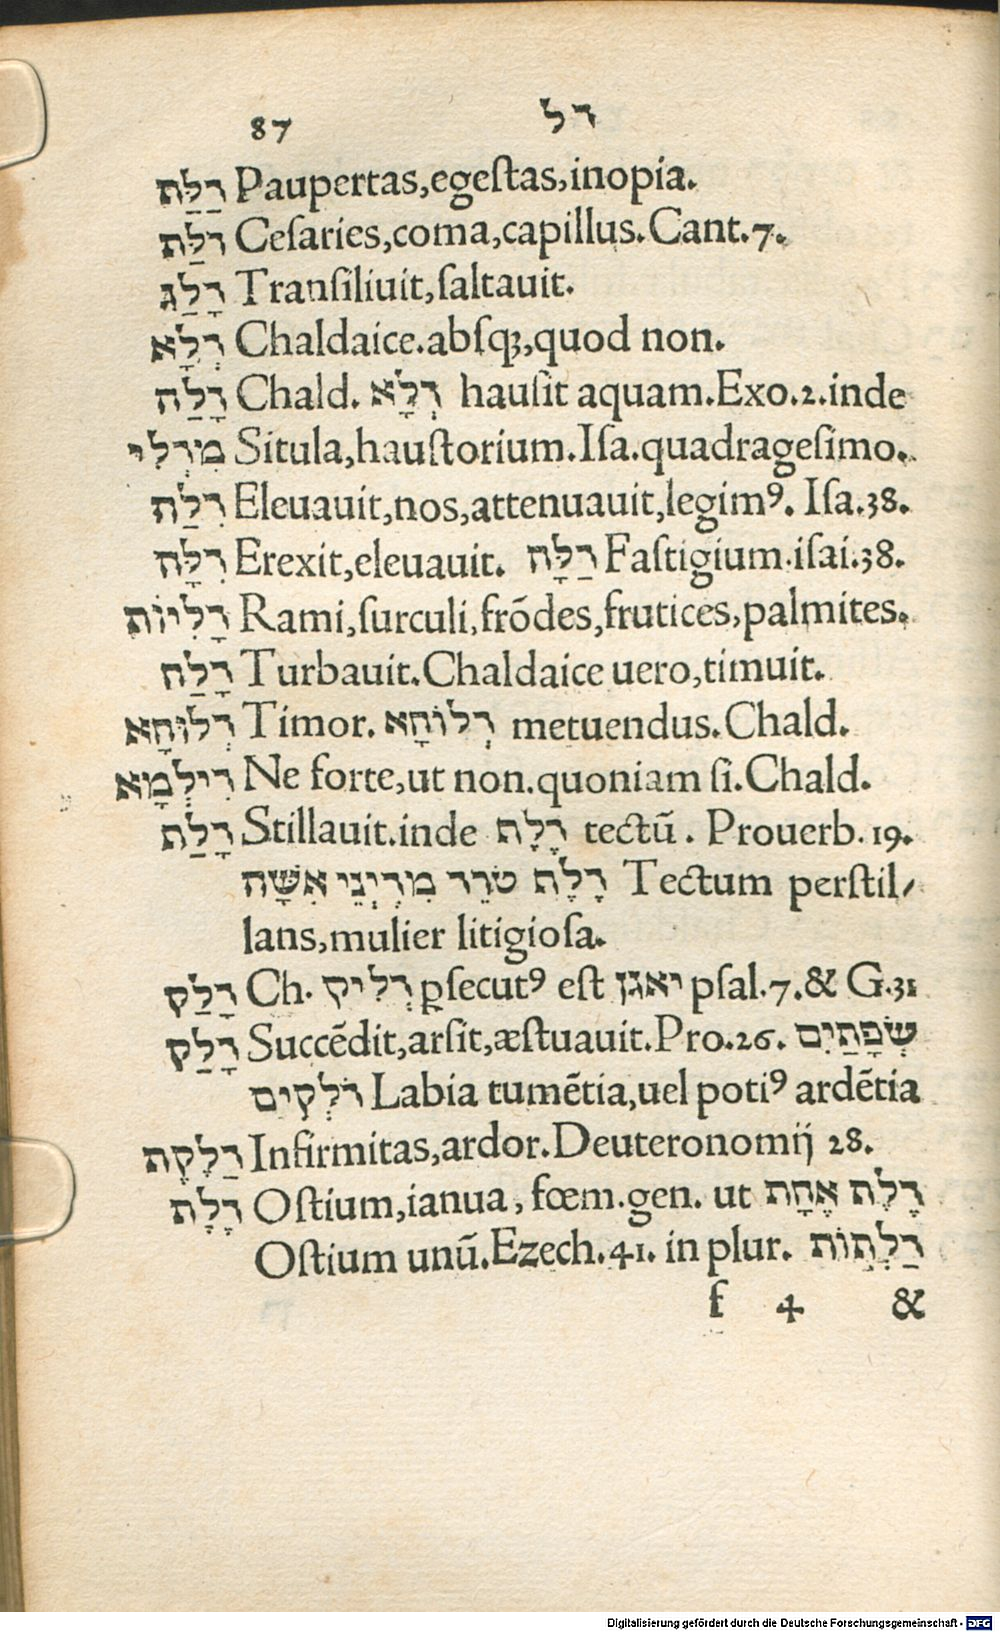 87 דל
דַלַּת Paupertas,egeſtas,inopia.
דלַּת Ceſaries,coma,capillus.Cant.7.
דָלַג Tranſiliuit,ſaltauit.
דְלָא Chaldaice.abſqꝫ,quod non.
דָלַה Chald. דְלָא hauſit aquam.Exo.2.inde
מִדְלִי Situla,hauſtorium.Iſa.quadrageſimo.
דִלַּה Eleuauit,nos,attenuauit,legimꝰ. Iſa.38.
דִלָּה Erexit,eleuauit. דַלָּה Faſtigium.iſai.38.
דָלִיוֹת Rami,ſurculi,frōdes,frutices,palmites.
דָלַח Turbauit.Chaldaice uero,timuit.
דְלוּחָא Timor. דְלוֹחָא metuendus.Chald.
דִילְמָא Ne forte,ut non.quoniam ſi.Chald.
דָלַת Stillauit.inde דֶלֶת tectū. Prouerb.19.
דֶלֶת טֹרֵד מִדְיְנֵי אִשָּׁה Tectum perſtil/
lans,mulier litigioſa.
דָלַק Ch. דְלִיק ꝑſecutꝰ eſt יאגן pſal.7.& G.31
דָלַק Succēdit,arſit,æſtuauit.Pro.26. שְׂפָתַיִם
דֹלְקִים Labia tumētia,uel potiꝰ ardētia
דַלֶקֶת Infirmitas,ardor.Deuteronomij 28.
דֶלֶת Oſtium,ianua, fœm.gen. ut דֶלֶת אֶחָת
Oſtium unū.Ezech.41. in plur. דַלְתוֹת
f 4 &
Digitalisierung gefördert durch die Deutsche Forschungsgemeinschaft - DFG